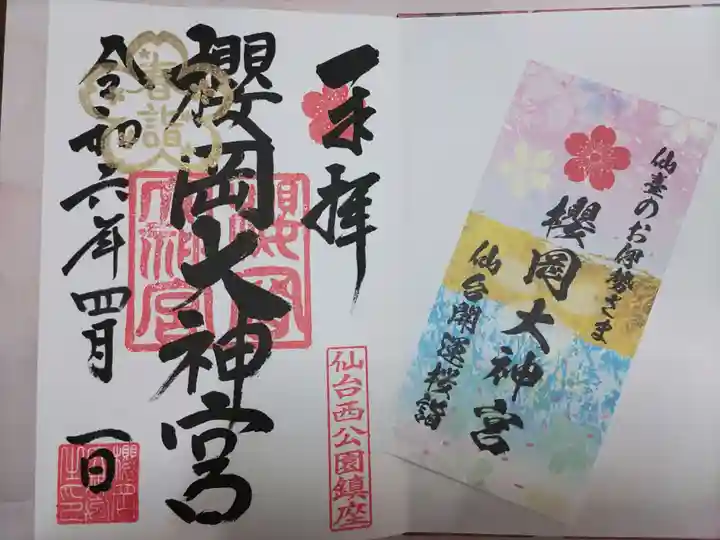 奉拝
櫻岡大神宮
春詣
令和六年四月一日
仙台西公園鎮座
仙臺のお伊勢さま
櫻岡大神宮
仙台開運桜詣